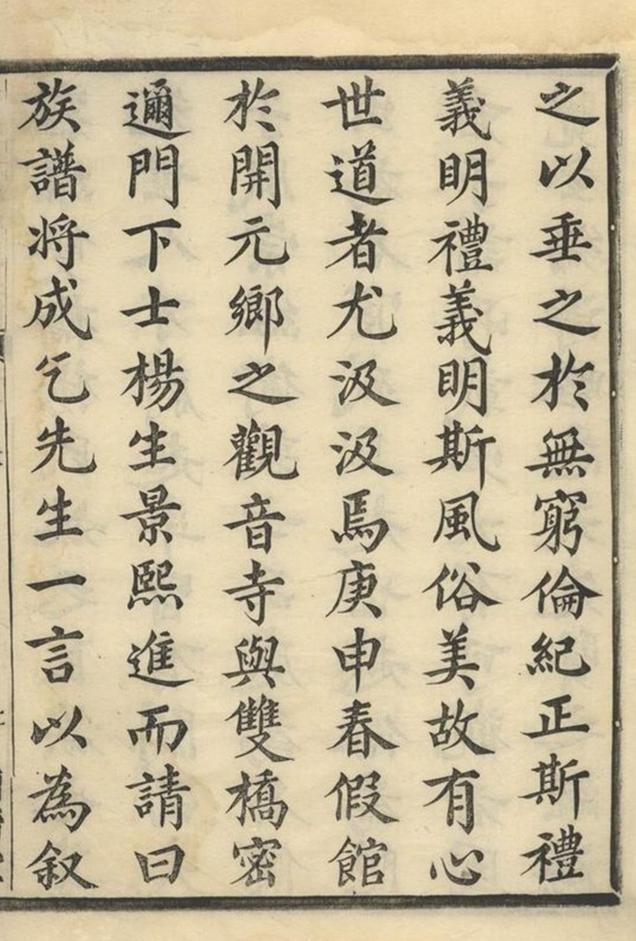 之以垂之於無窮倫紀正斯禮
義明禮義明斯風俗美故有心
世道者尤汲汲焉庚申春假館
於開元鄉之觀音寺與雙橋密
邇門下士楊生景熙進而請曰
族譜将成乞先生一言以為叙